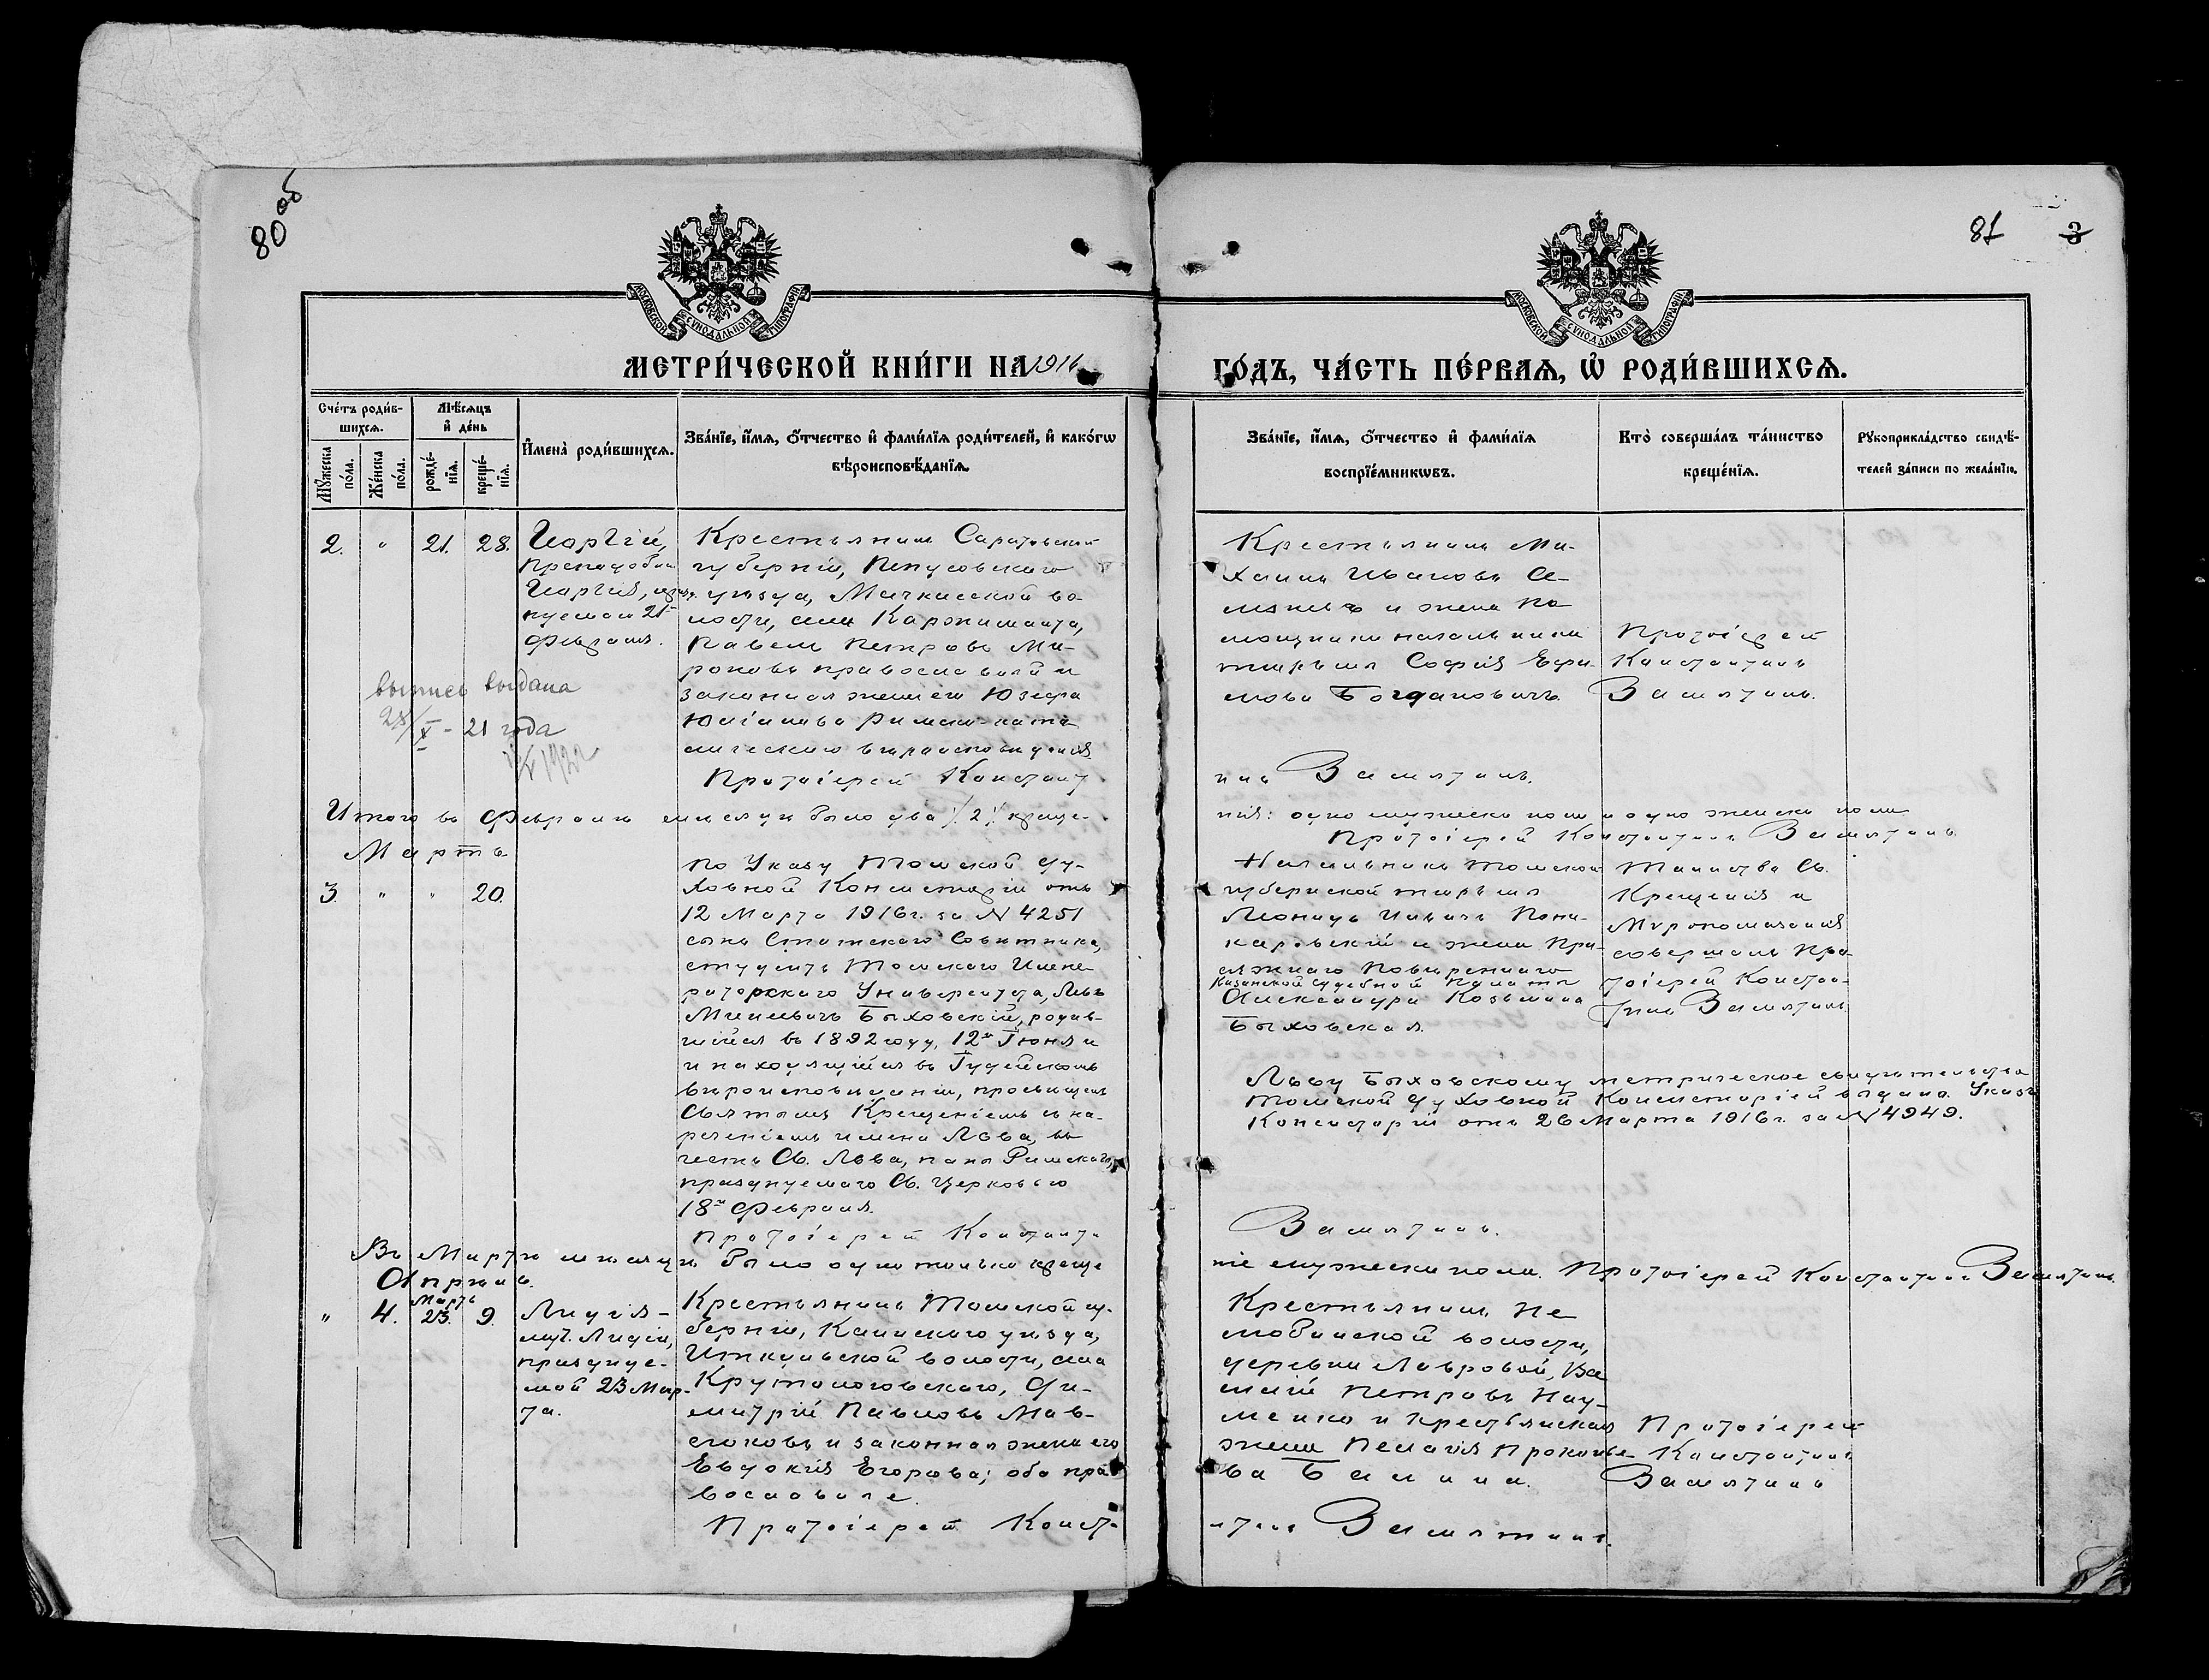 80 об
81
3
МОСКОВСКОЙ СѴНОДАЛЬНОЙ ТИПОГРАФІИ
МОСКОВСКОЙ СѴНОДАЛЬНОЙ ТИПОГРАФІИ
МЕТРИ́ЧЕСКОЙ КНИ́ГИ НА 1916
ГО́ДЪ, ЧА́СТЬ ПЕ́РВАѦ, Ѡ҆ РОДИ́ВШИХСѦ.
Сче́тъ роди́в-
шихсѧ.
Мѣ́сѧцъ
и҆ де́нь
Мꙋ́жеска
по́ла.
Же́нска
по́ла.
рожде́-
нїѧ.
креще́-
нїѧ.
И҆мена̀ роди́вшихсѧ.
Зва́нїе, и҆́мѧ, ѻ҆́тчество и҆ фами́лїѧ роди́телей, и҆ како́гѡ
вѣроисповѣ́данїѧ.
Зва́нїе, и҆́мѧ, ѻ҆́тчество и҆ фами́лїѧ
воспрїе́мникѡвъ.
Кто̀ соверша́лъ та́инство
креще́нїѧ.
Рꙋкоприкла́дство свидѣ́-
телей за́писи по жела́нїю.
2. " 21. 28.
Георгій,
Преподобн.
Георгія, празд-
нуемаго 21
Февраля.
выпись выдана
28/X - 21 года
1922
Крестьянинъ Саратовской
губерніи,
уѣзда, Мачкасской во-
лости, села Каржиманта,
Павелъ Петровъ Ми-
роновъ православный и
законная жена его Юзефа
Юліанова Римско-като-
лическаго вѣроисповѣданія
Протоіерей Констант
Крестьянинъ Ми-
хаилъ Ивановъ
и жена По
мощника начальника
тюрьмы Софія Ефи-
мова Богдановичъ
Протоіерей
Константинъ
Замятинъ.
инъ Замятинъ.
Итого въ Февралѣ мѣсяцѣ было два /2/ креще-
нія: одно мужеска пола и одно женска пола
Протоіерей Константинъ Замятинъ
Мартъ
3. " " 20.
По Указу Томской Ду-
ховной Консисторіи отъ
12 Марта 1916 г. за № 4251
сынъ Статскаго Совѣтника,
студентъ Томскаго Импе-
раторскаго Университета, Левъ
Быховскій, родив-
шійся въ 1892 году, 12го Іюня и
и находящійся въ Іудейскомъ
вѣроисповѣданіи, просвѣщенъ
Святымъ Крещеніемъ съ на-
реченіемъ имени Льва, въ
честь Св. Льва, папы Римскаго,
празднуемаго Св. Церковью
18го Февраля.
Протоіерей Константи
Начальникъ Томской
губернской тюрьмы
Леонидъ
и жена При-
сяжнаго Повѣреннаго
Казанской Судебной Палаты
Александра Козьмина
Быховская.
Таинства Св.
Крещенія и
Мѵропомазанія
совершалъ Про-
тоіерей Констан-
тинъ Замятинъ
Льву Быховскому метрическое свидѣтельство
Томской Духовной Консисторіей выдано. Указъ
Консисторіи отъ 26 Марта 1916 г. за № 4949.
Замятинъ.
Въ Мартѣ мѣсяцѣ было одно только креще
ніе мужеска пола. Протоіерей Константинъ Замятинъ.
Апрѣль.
" 4. Мартъ 23. 9.
Лидія -
муч. Лидіи,
празднуе-
мой 23 Мар-
та.
Крестьянинъ Томской гу-
берніи, Каинскаго уѣзда,
Иткульской волости, села
Крутологовскаго, Ди-
митрій Павловъ
и законная жена его
Евдокія Егорова; оба пра
вославные.
Протоіерей Конста
Крестьянинъ Не
любинской волости,
деревни Лавровой, Ва
силій Петровъ Нау-
менко и крестьянская
жена Пелагія Прокопье-
ва Балина.
Протоіерей
Константинъ
Замятинъ
нтинъ Замятинъ.